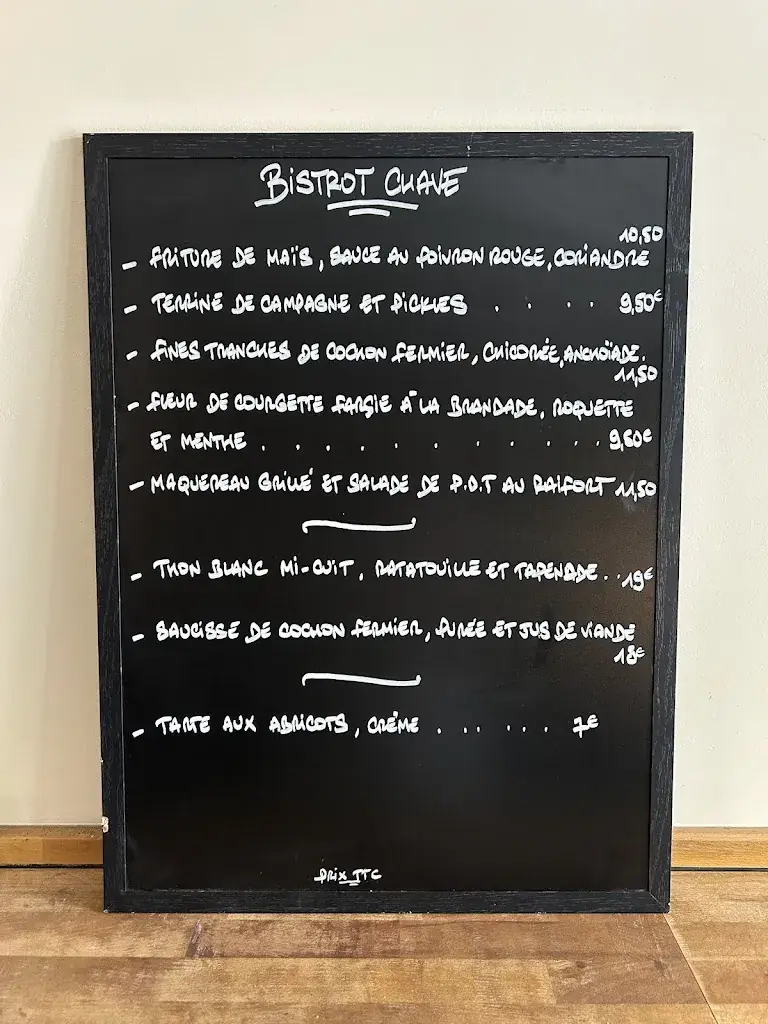 BISTROT CHAVE
10,50
- FRITURE DE MAÏS, SAUCE AU POIVRON ROUGE, CORIANDRE
- TERRINE DE CAMPAGNE ET PICKLES . . . . 9,50€
- FINES TRANCHES DE COCHON FERMIER, CHICORÉE, ANCHOÏADE.
11,50
- FLEUR DE COURGETTE FARSIE À LA BRANDADE, ROQUETTE
ET MENTHE . . . . . . . . . . . 9,50€
- MAQUEREAU GRILLÉ ET SALADE DE P.D.T AU RAIFORT 11,50
- THON BLANC MI-CUIT, RATATOUILLE ET TAPENADE . . 19€
- SAUCISSE DE COCHON FERMIER, PURÉE ET JUS DE VIANDE
18€
- TARTE AUX ABRICOTS, CRÈME . . . . . . 7€
PRIX TTC